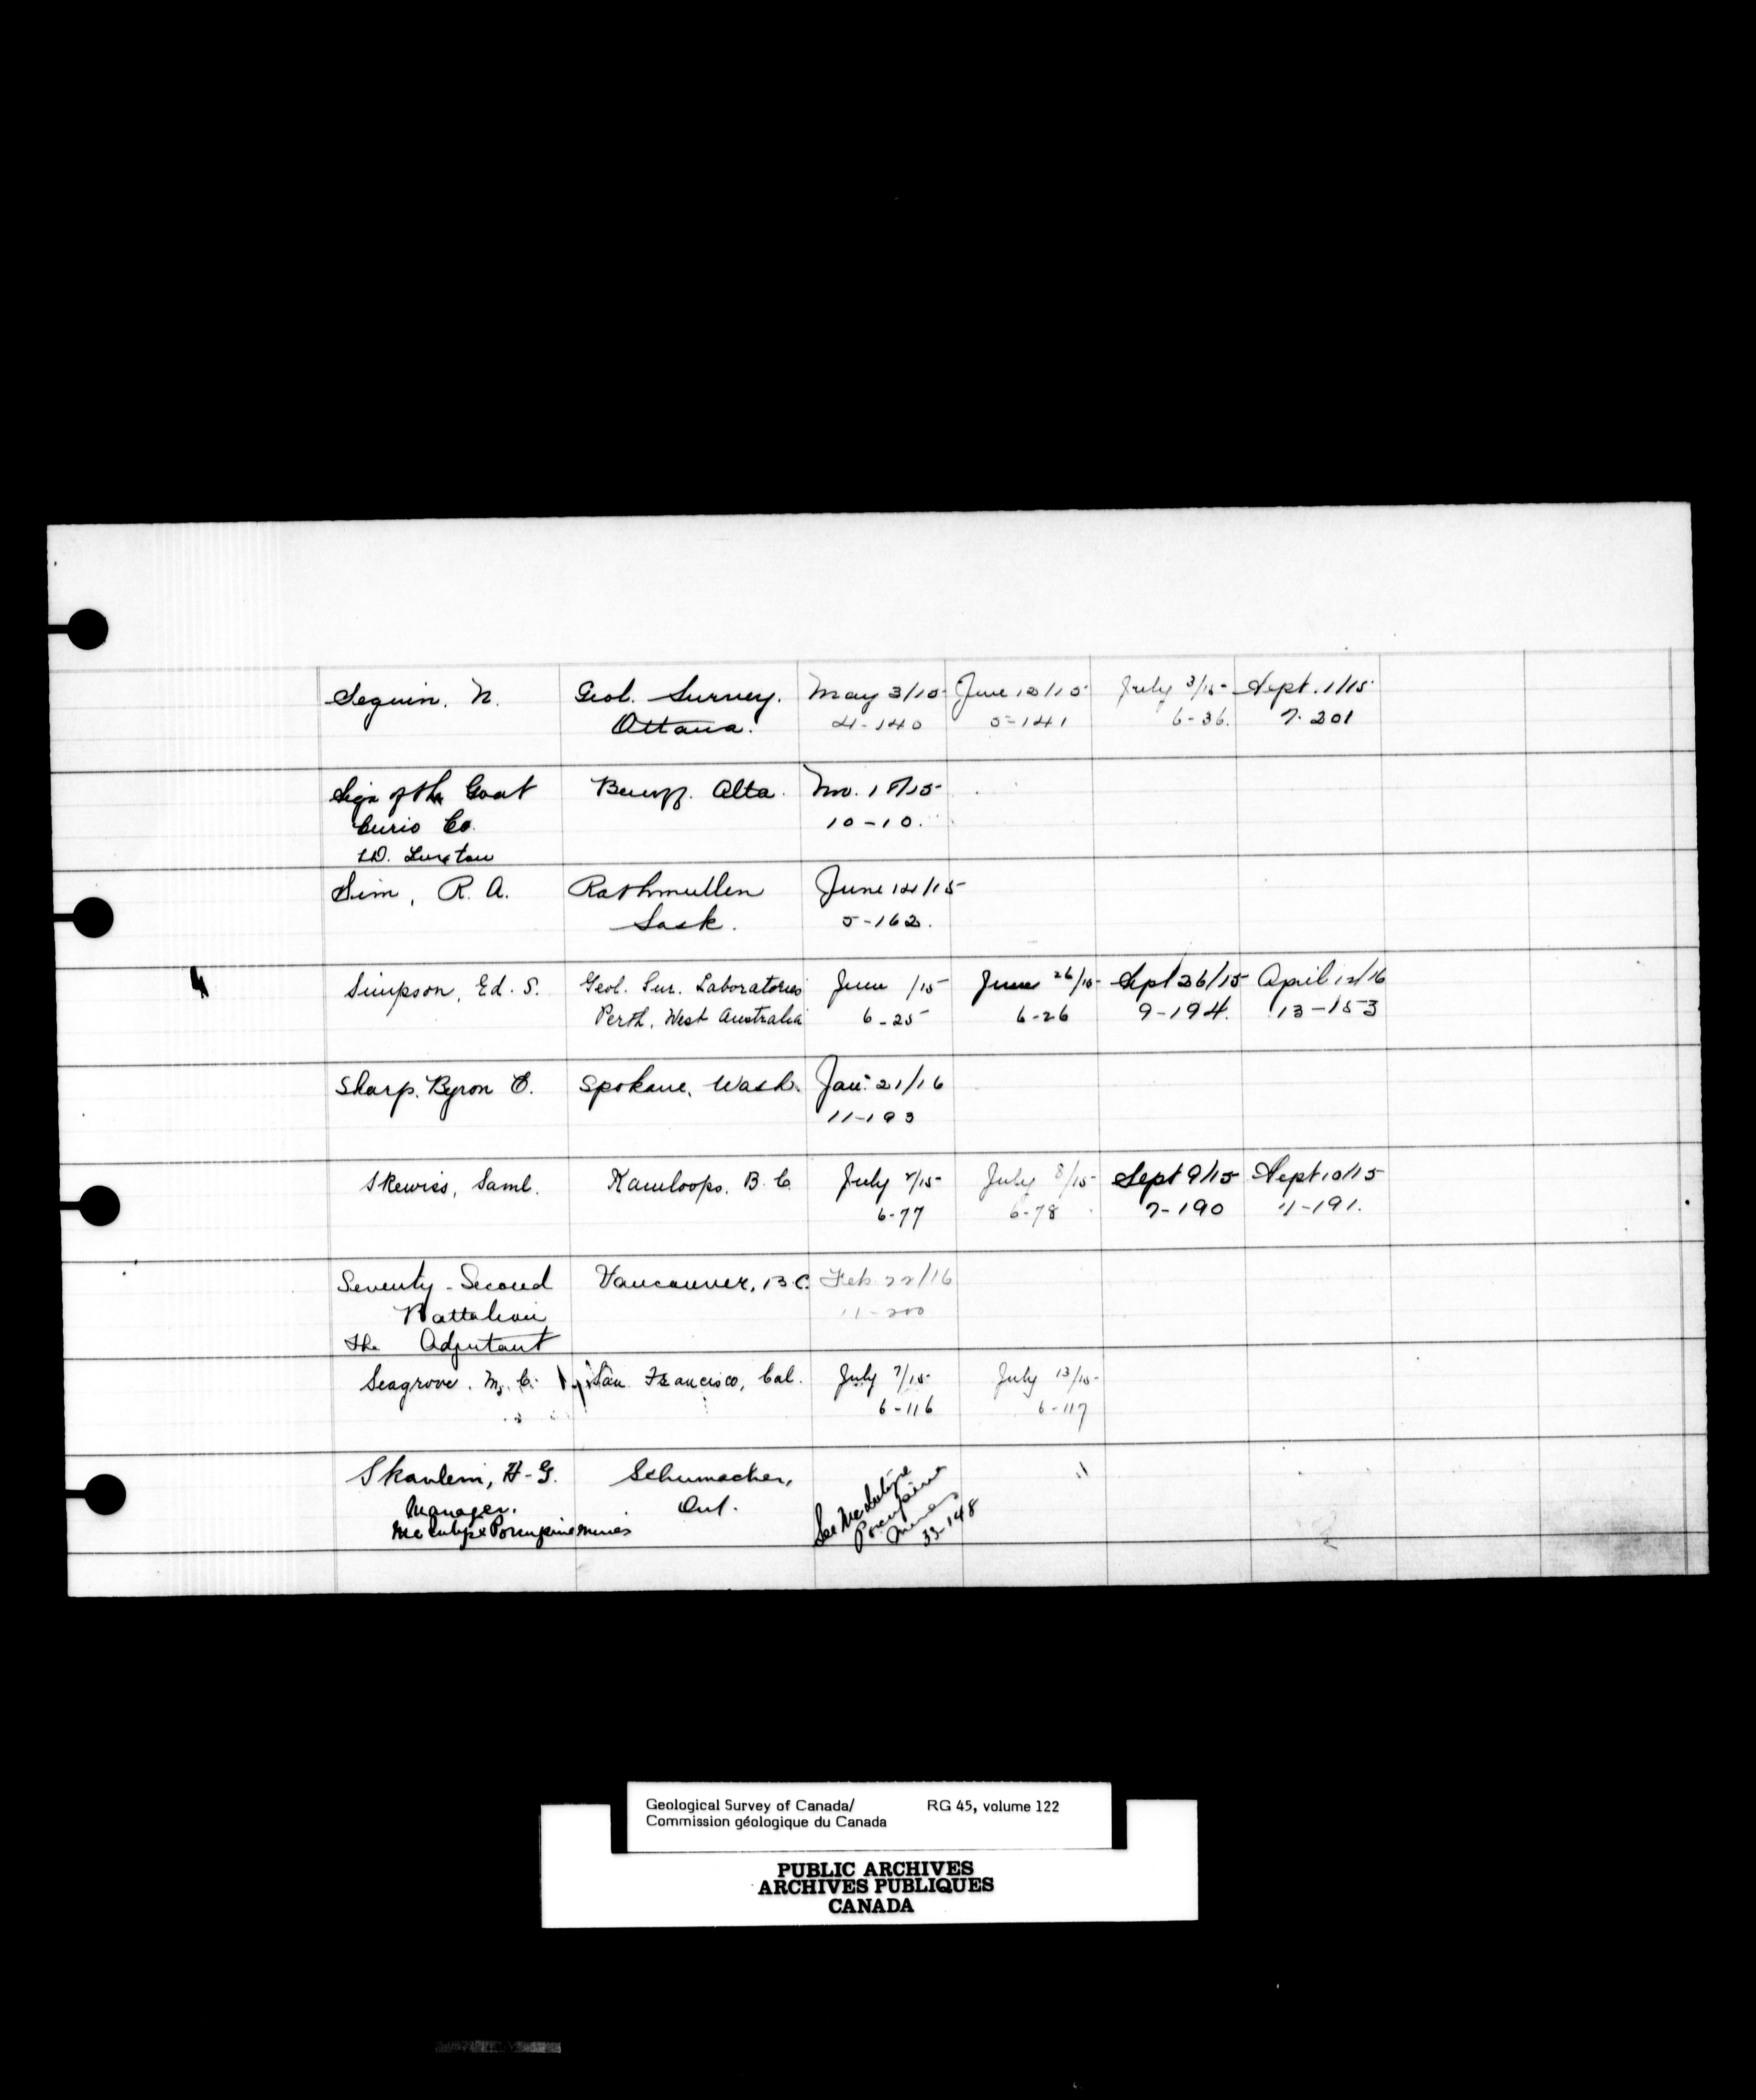 Seguin. N. Geol. Survey. May 3/15 June 12/15 July 3/15 Sept. 1/15
Ottawa. 4-140 5-141 6-36. 7-201
Sign of the Goat Banff. Alta. Nov. 18/15
Curio Co. 10-10.
Sim, R. A. Rathmullen June 14/15
Sask. 5-162.
Simpson, Ed. S. Geol. Sur. Laboratories June /15 June 26/15 Sept 26/15 April 12/16
Perth, West Australia 6-25 6-26 9-194. 13-153
Sharp. Byron E. Spokane, Wash. Jan. 21/16
11-193
Skewiss, Saml. Kamloops. B.C. July 7/15 July 8/15 Sept 9/15 Sept 10/15
6-77 6-78 7-190 -191.
Seventy-Second Vancouver, B C. Feb 22/16
Battalion 11-200
the Adjutant
Seagrove. M. C. San Francisco, Cal. July 7/15 July 13/15
6-116 6-117
Skavlem, H-G. Schumacher,
Manager. Ont.
McIntyre Porcupine Mines
See McIntyre
Porcupine
Mines
33-148
Geological Survey of Canada/ RG 45, volume 122
Commission géologique du Canada
PUBLIC ARCHIVES
ARCHIVES PUBLIQUES
CANADA